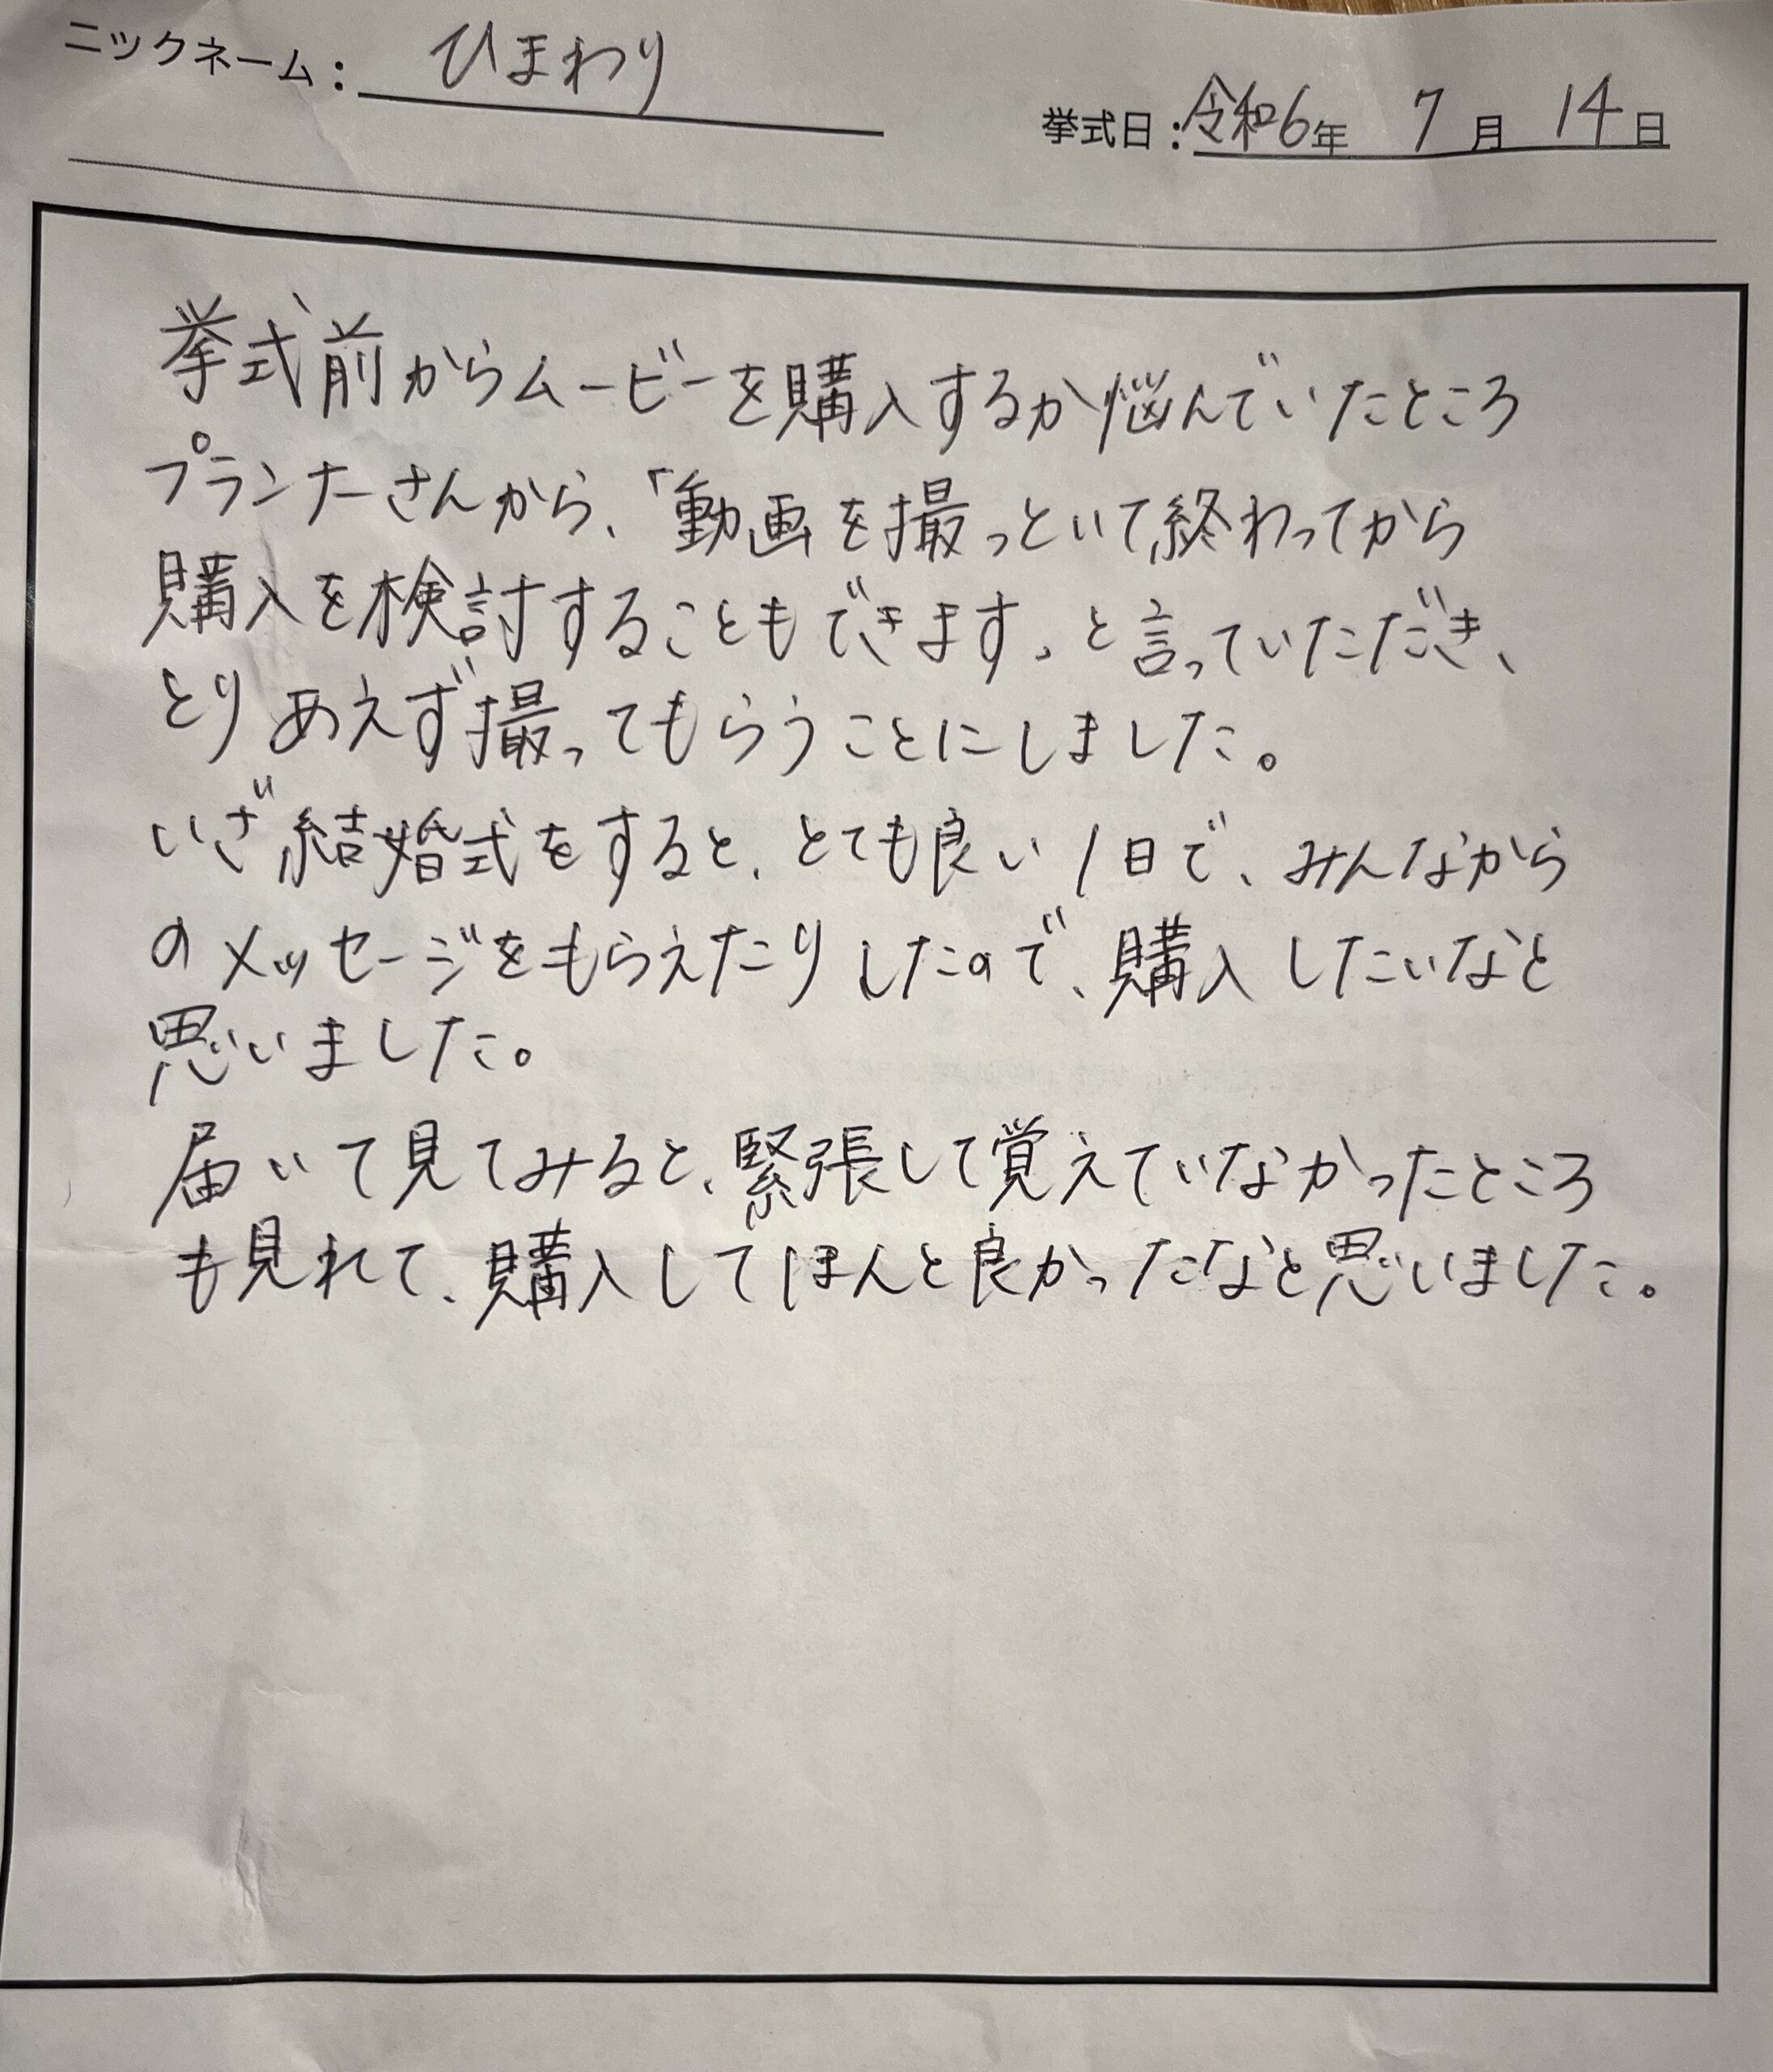 ニックネーム： ひまわり
挙式日：令和6年 7月 14日
挙式前からムービーを購入するか悩んでいたところ
プランナーさんから、「動画を撮っといて終わってから
購入を検討することもできます。と言っていただき、
とりあえず撮ってもらうことにしました。
いざ結婚式をすると、とても良い1日で、みんなから
のメッセージをもらえたりしたので、購入したいなと
思いました。
届いて見てみると、緊張して覚えていなかったところ
も見れて、購入してほんと良かったなと思いました。